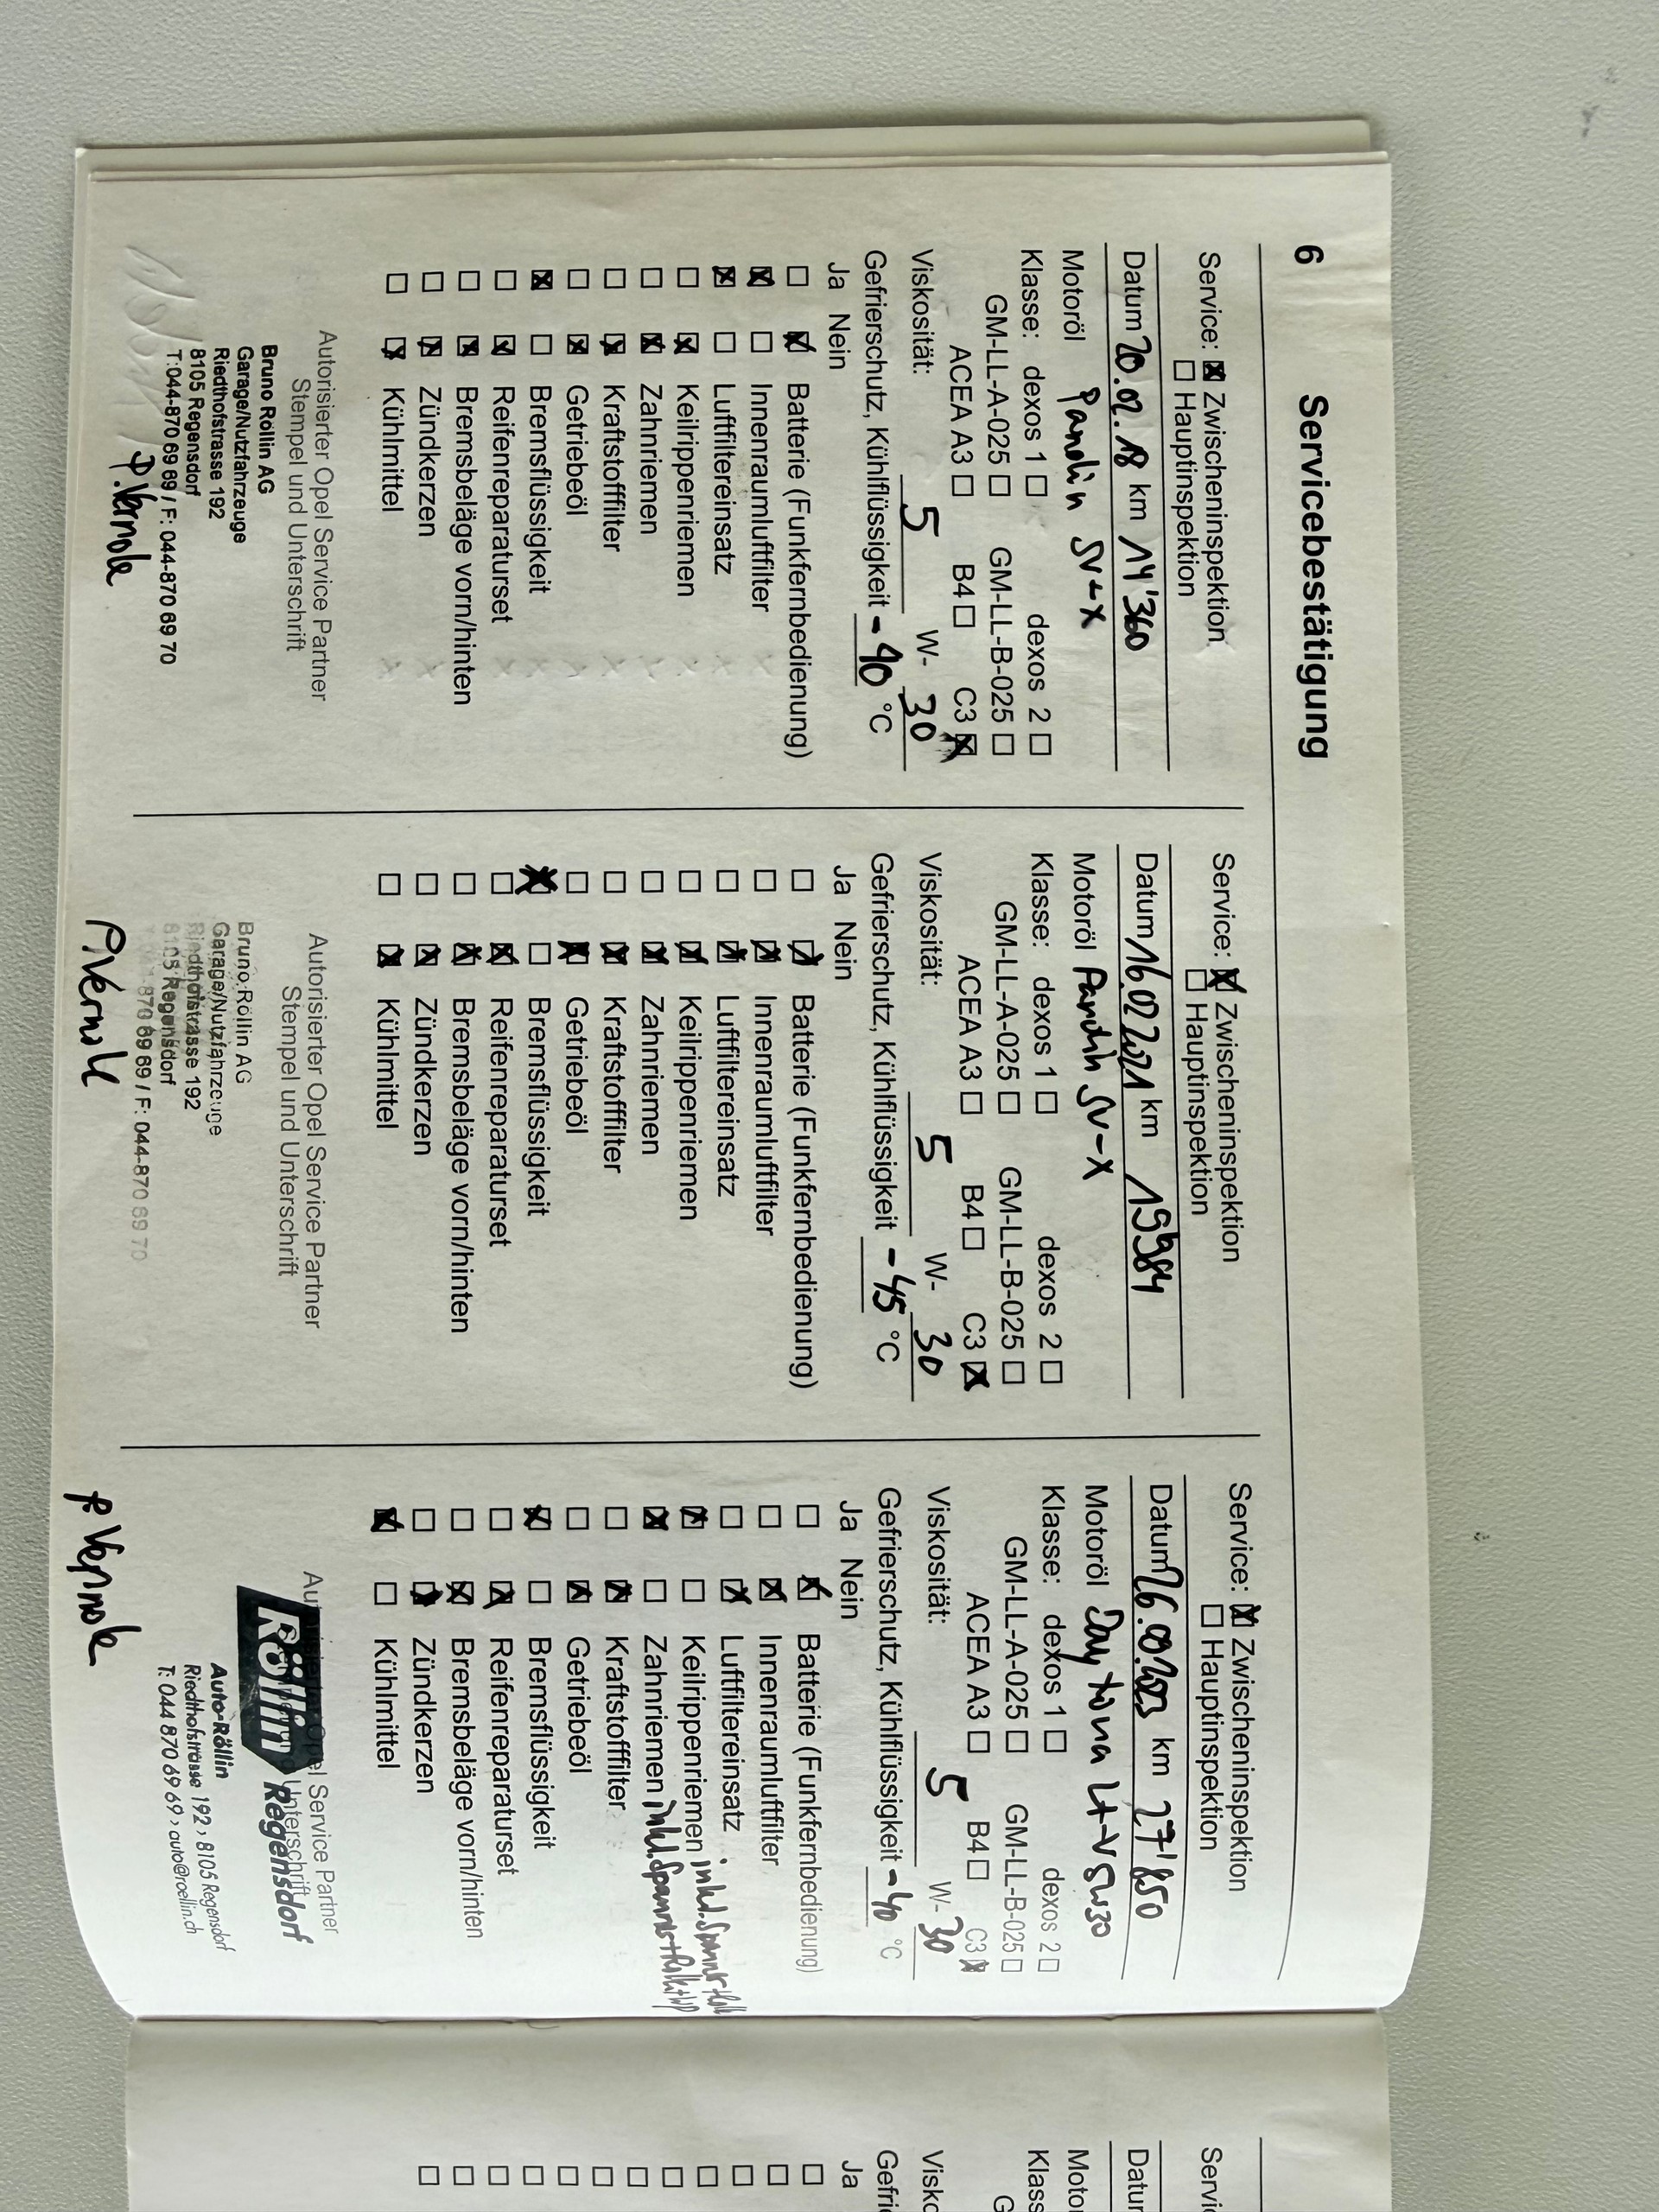 6 Servicebestätigung
Service: ☒ Zwischeninspektion
☐ Hauptinspektion
Datum 20.02.18 km 14'360
Motoröl Panolin SV-X
Klasse: dexos 1 ☐ dexos 2 ☐
GM-LL-A-025 ☐ GM-LL-B-025 ☐
ACEA A3 ☐ B4 ☐ C3 ☒
Viskosität: 5 W- 30
Gefrierschutz, Kühlflüssigkeit -40 °C
Ja Nein
☐ ☒ Batterie (Funkfernbedienung)
☒ ☐ Innenraumluftfilter
☒ ☐ Luftfiltereinsatz
☐ ☒ Keilrippenriemen
☐ ☒ Zahnriemen
☐ ☒ Kraftstofffilter
☐ ☒ Getriebeöl
☒ ☐ Bremsflüssigkeit
☐ ☒ Reifenreparaturset
☐ ☒ Bremsbeläge vorn/hinten
☐ ☒ Zündkerzen
☐ ☒ Kühlmittel
Autorisierter Opel Service Partner
Stempel und Unterschrift
Bruno Röllin AG
Garage/Nutzfahrzeuge
Riedthofstrasse 192
8105 Regensdorf
T:044-870 69 69 / F: 044-870 69 70
P. Vernole
Service: ☒ Zwischeninspektion
☐ Hauptinspektion
Datum 16.02.2021 km 19984
Motoröl Panolin SV-X
Klasse: dexos 1 ☐ dexos 2 ☐
GM-LL-A-025 ☐ GM-LL-B-025 ☐
ACEA A3 ☐ B4 ☐ C3 ☒
Viskosität: 5 W- 30
Gefrierschutz, Kühlflüssigkeit -45 °C
Ja Nein
☐ ☒ Batterie (Funkfernbedienung)
☐ ☒ Innenraumluftfilter
☐ ☒ Luftfiltereinsatz
☐ ☒ Keilrippenriemen
☐ ☒ Zahnriemen
☐ ☒ Kraftstofffilter
☐ ☒ Getriebeöl
☒ ☐ Bremsflüssigkeit
☐ ☒ Reifenreparaturset
☐ ☒ Bremsbeläge vorn/hinten
☐ ☒ Zündkerzen
☐ ☒ Kühlmittel
Autorisierter Opel Service Partner
Stempel und Unterschrift
Bruno Röllin AG
Garage/Nutzfahrzeuge
Riedthofstrasse 192
8105 Regensdorf
870 69 69 / F: 044-870 69 70
P. Vernole
Service: ☒ Zwischeninspektion
☐ Hauptinspektion
Datum km 27'850
Motoröl Daytona L+V 5W30
Klasse: dexos 1 ☐ dexos 2 ☐
GM-LL-A-025 ☐ GM-LL-B-025 ☐
ACEA A3 ☐ B4 ☐ C3 ☒
Viskosität: 5 W- 30
Gefrierschutz, Kühlflüssigkeit -40 °C
Ja Nein
☐ ☒ Batterie (Funkfernbedienung)
☐ ☒ Innenraumluftfilter
☐ ☒ Luftfiltereinsatz
☒ ☐ Keilrippenriemen inkl. Spanner+Rolle
☒ ☐ Zahnriemen inkl. Spanner+Rolle+WP
☐ ☒ Kraftstofffilter
☐ ☒ Getriebeöl
☒ ☐ Bremsflüssigkeit
☐ ☒ Reifenreparaturset
☐ ☒ Bremsbeläge vorn/hinten
☐ ☒ Zündkerzen
☒ ☐ Kühlmittel
Service Partner
Unterschrift
Röllin Regensdorf
Auto-Röllin
Riedthofstrasse 192, 8105 Regensdorf
T: 044 870 69 69, auto@roellin.ch
P. Vernole
Servic
Datur
Motor
Klass
G
Visko
Gefrie
Ja